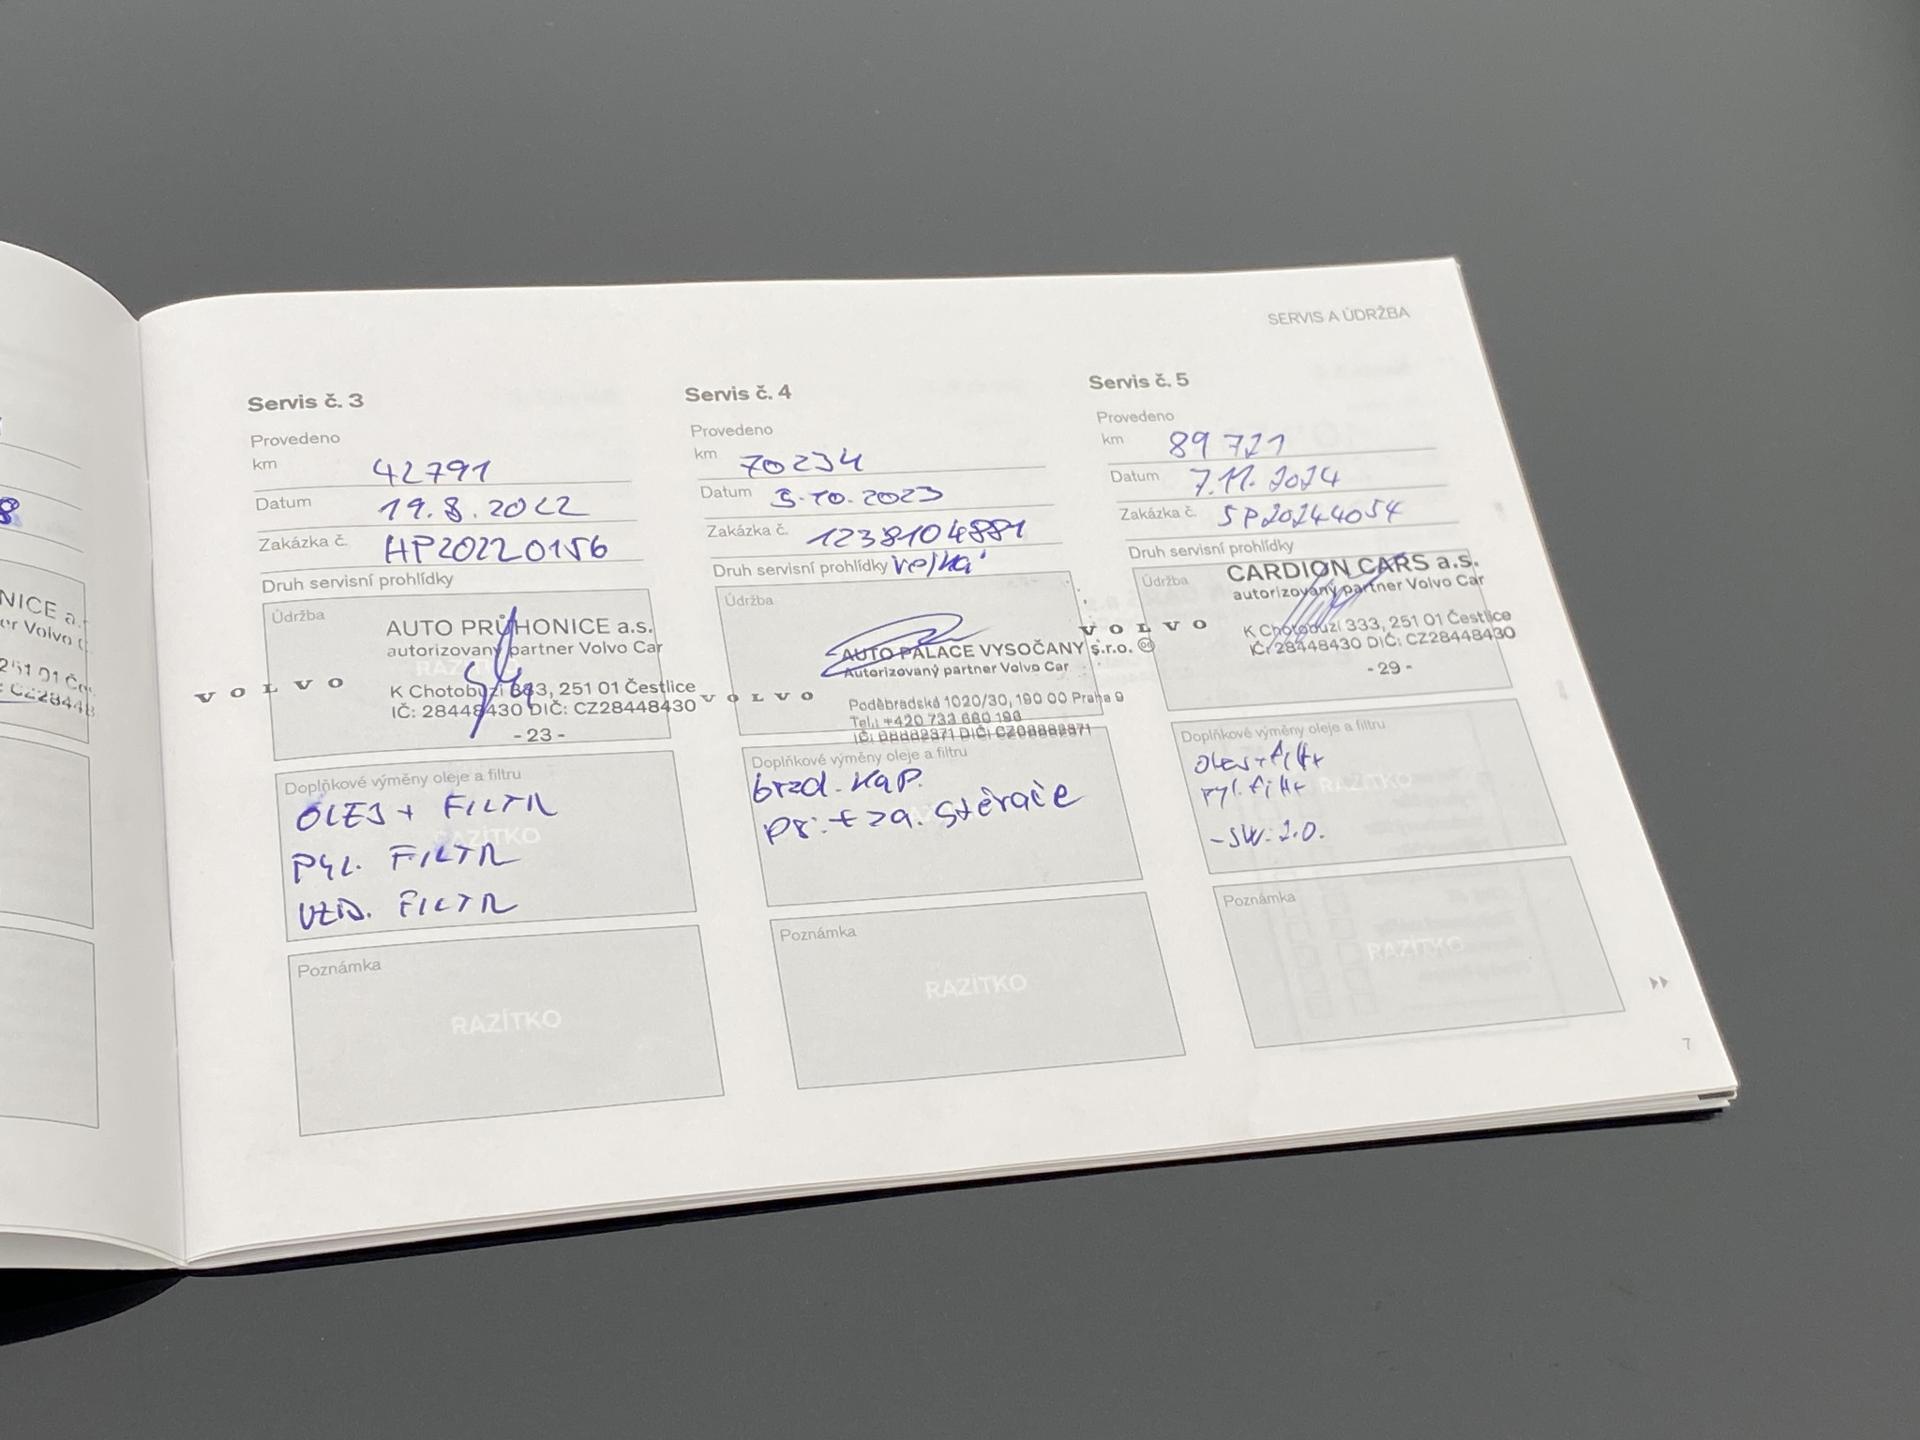 SERVIS A ÚDRŽBA
Servis č. 3
Provedeno
km 42791
Datum 19.8.2022
Zakázka č. HP20220156
Druh servisní prohlídky
Údržba
AUTO PRŮHONICE a.s.
autorizovaný partner Volvo Car
VOLVO
K Chotobuzi 333, 251 01 Čestlice
IČ: 28448430 DIČ: CZ28448430
- 23 -
Doplňkové výměny oleje a filtru
OLEJ + FILTR
RAZÍTKO
PYL. FILTR
VZD. FILTR
Poznámka
RAZÍTKO
Servis č. 4
Provedeno
km 70234
Datum 3.10.2023
Zakázka č. 1238104881
Druh servisní prohlídky velká
Údržba
AUTO PALACE VYSOČANY s.r.o.
Autorizovaný partner Volvo Car
VOLVO
Poděbradská 1020/30, 190 00 Praha 9
Tel.: +420 733 680 196
Doplňkové výměny oleje a filtru
brzd. kap.
př. + za. stěrače
Poznámka
RAZÍTKO
Servis č. 5
Provedeno
km 89 721
Datum 7.11.2024
Zakázka č. SP20244054
Druh servisní prohlídky
Údržba
CARDION CARS a.s.
autorizovaný partner Volvo Car
VOLVO
K Chotobuzi 333, 251 01 Čestlice
IČ: 28448430 DIČ: CZ28448430
- 29 -
Doplňkové výměny oleje a filtru
olej + filtr
pyl. filtr
RAZÍTKO
- SW: 2.0.
Poznámka
RAZÍTKO
7